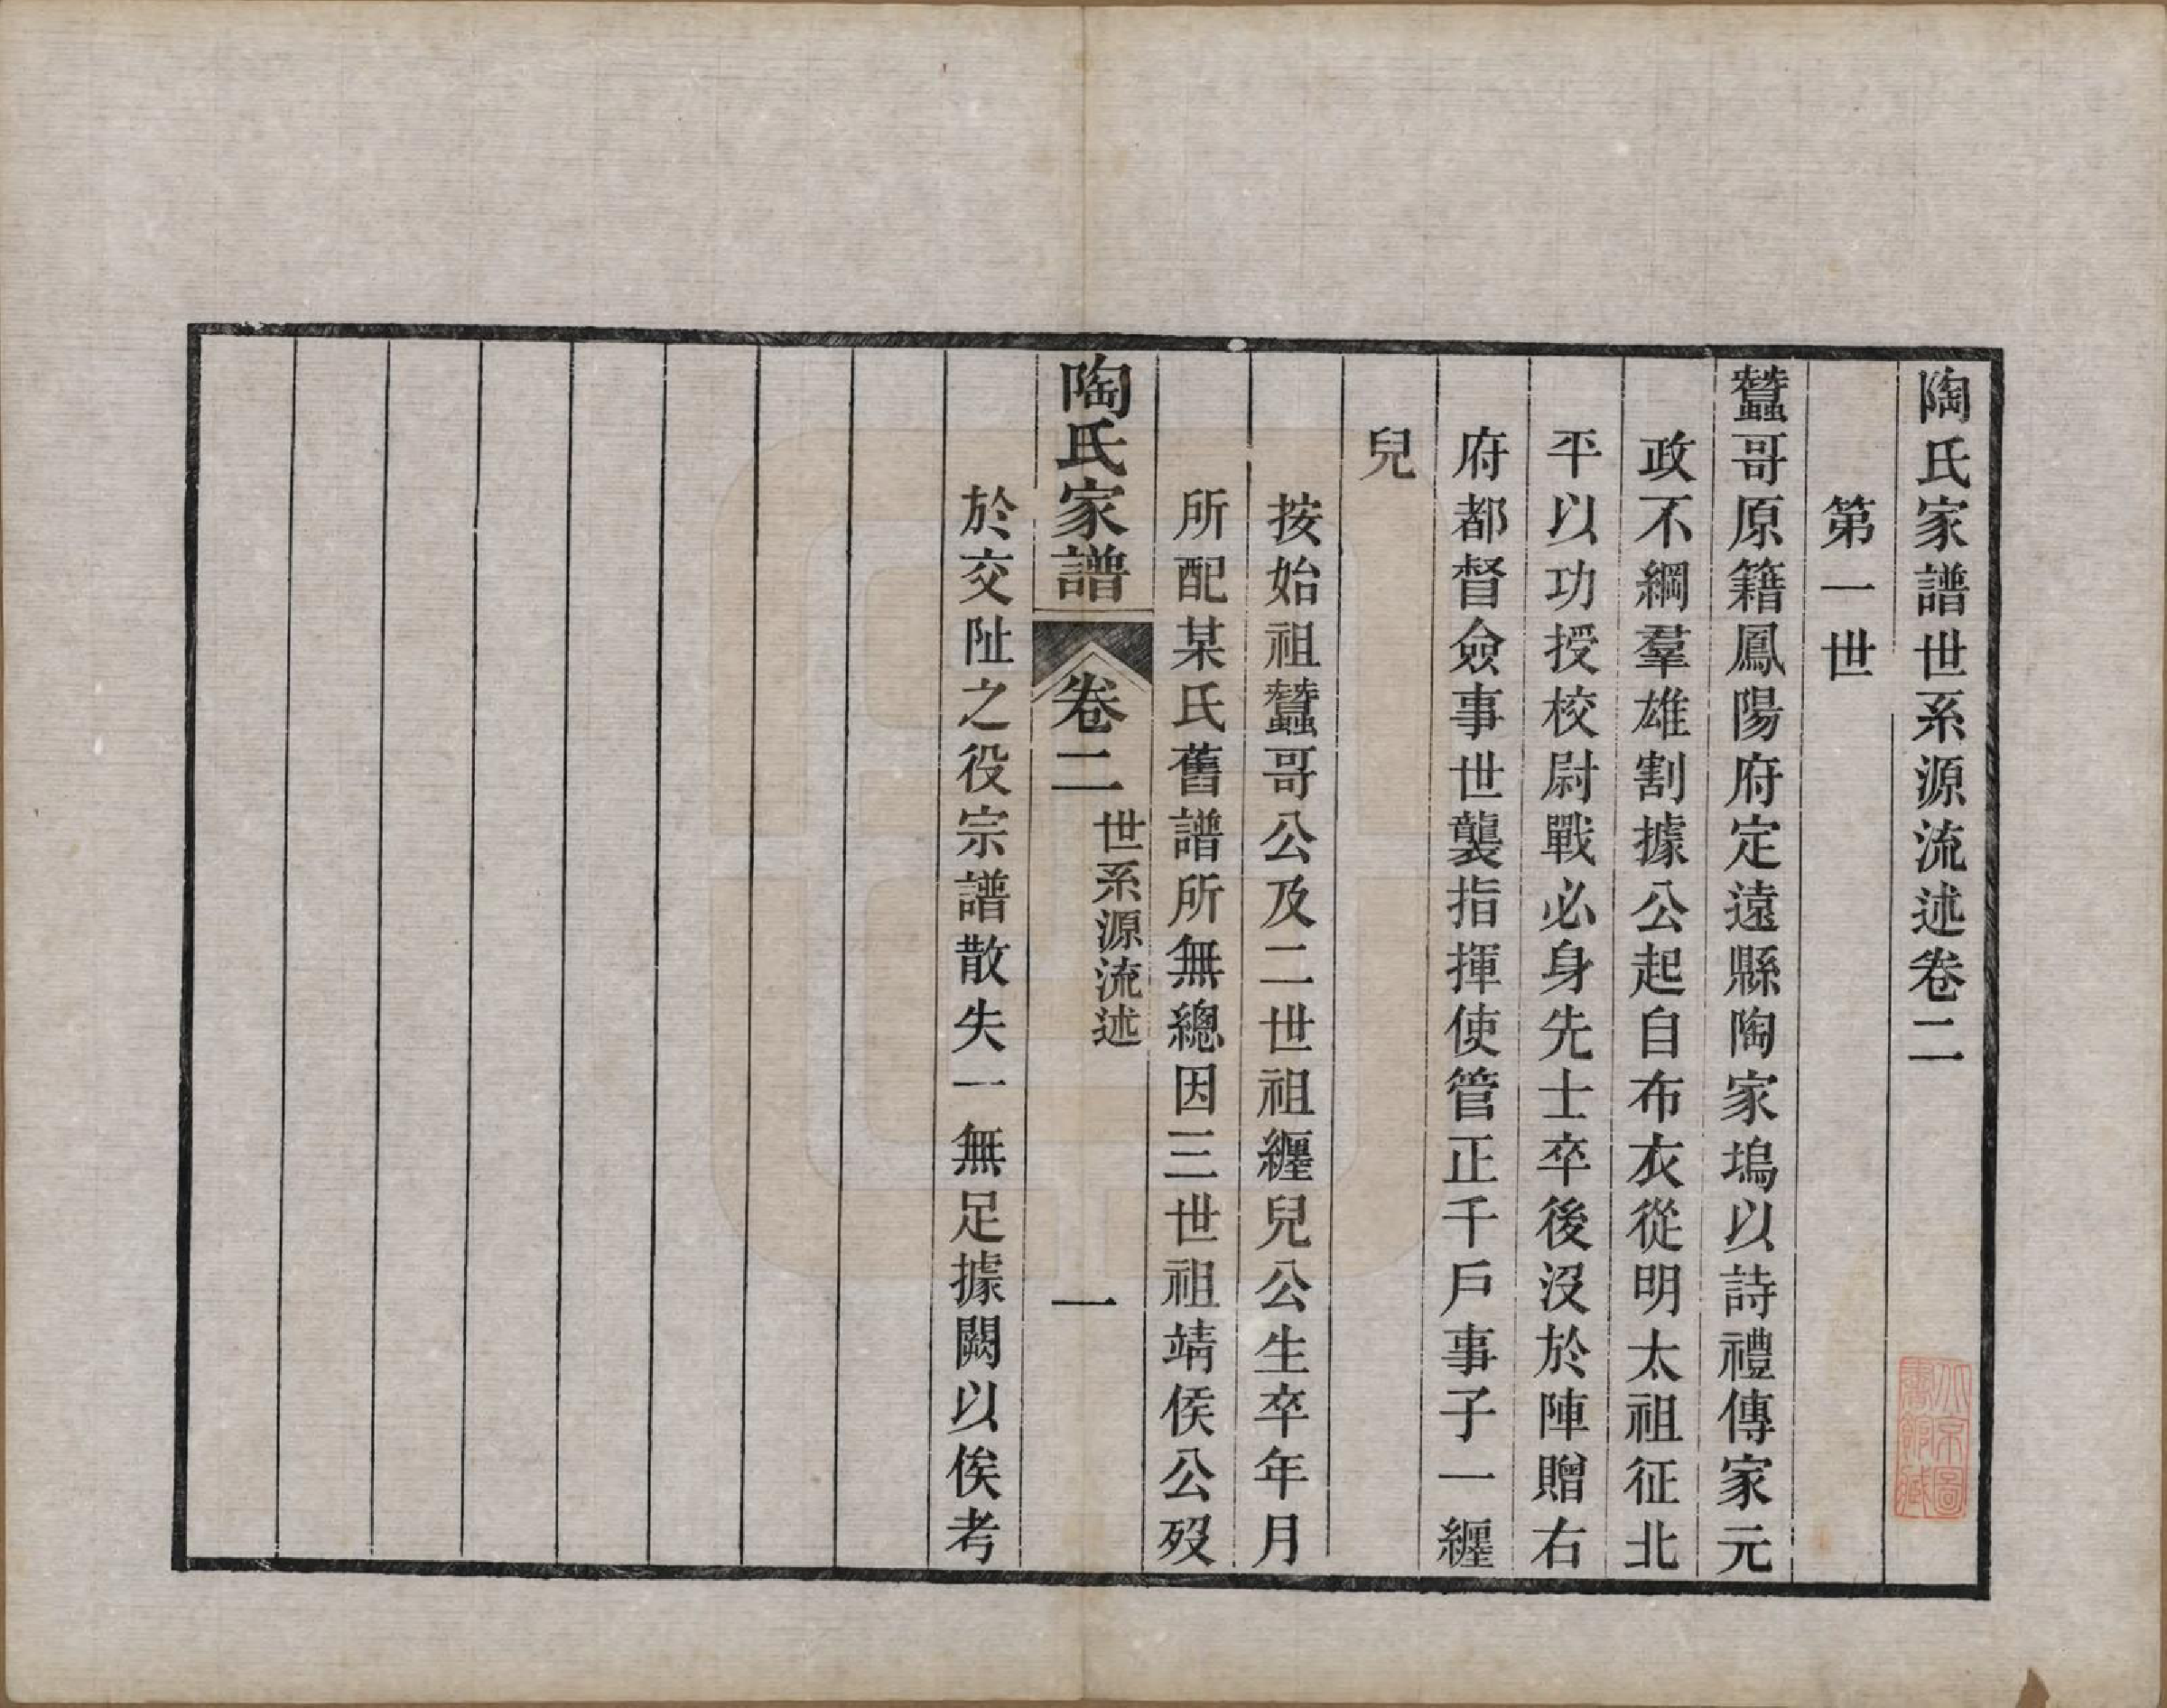 陶氏家譜世系源流述卷二
第一世
蠶哥原籍鳳陽府定遠縣陶家塢以詩禮傳家元
政不綱羣雄割據公起自布衣從明太祖征北
平以功授校尉戰必身先士卒後沒於陣贈右
府都督僉事世襲指揮使管正千戶事子一纏
兒
按始祖蠶哥公及二世祖纏兒公生卒年月
所配某氏舊譜所無總因三世祖靖侯公歿
陶氏家譜
卷二
世系源流述
一
於交阯之役宗譜散失一無足據闕以俟考
北京圖
書館藏